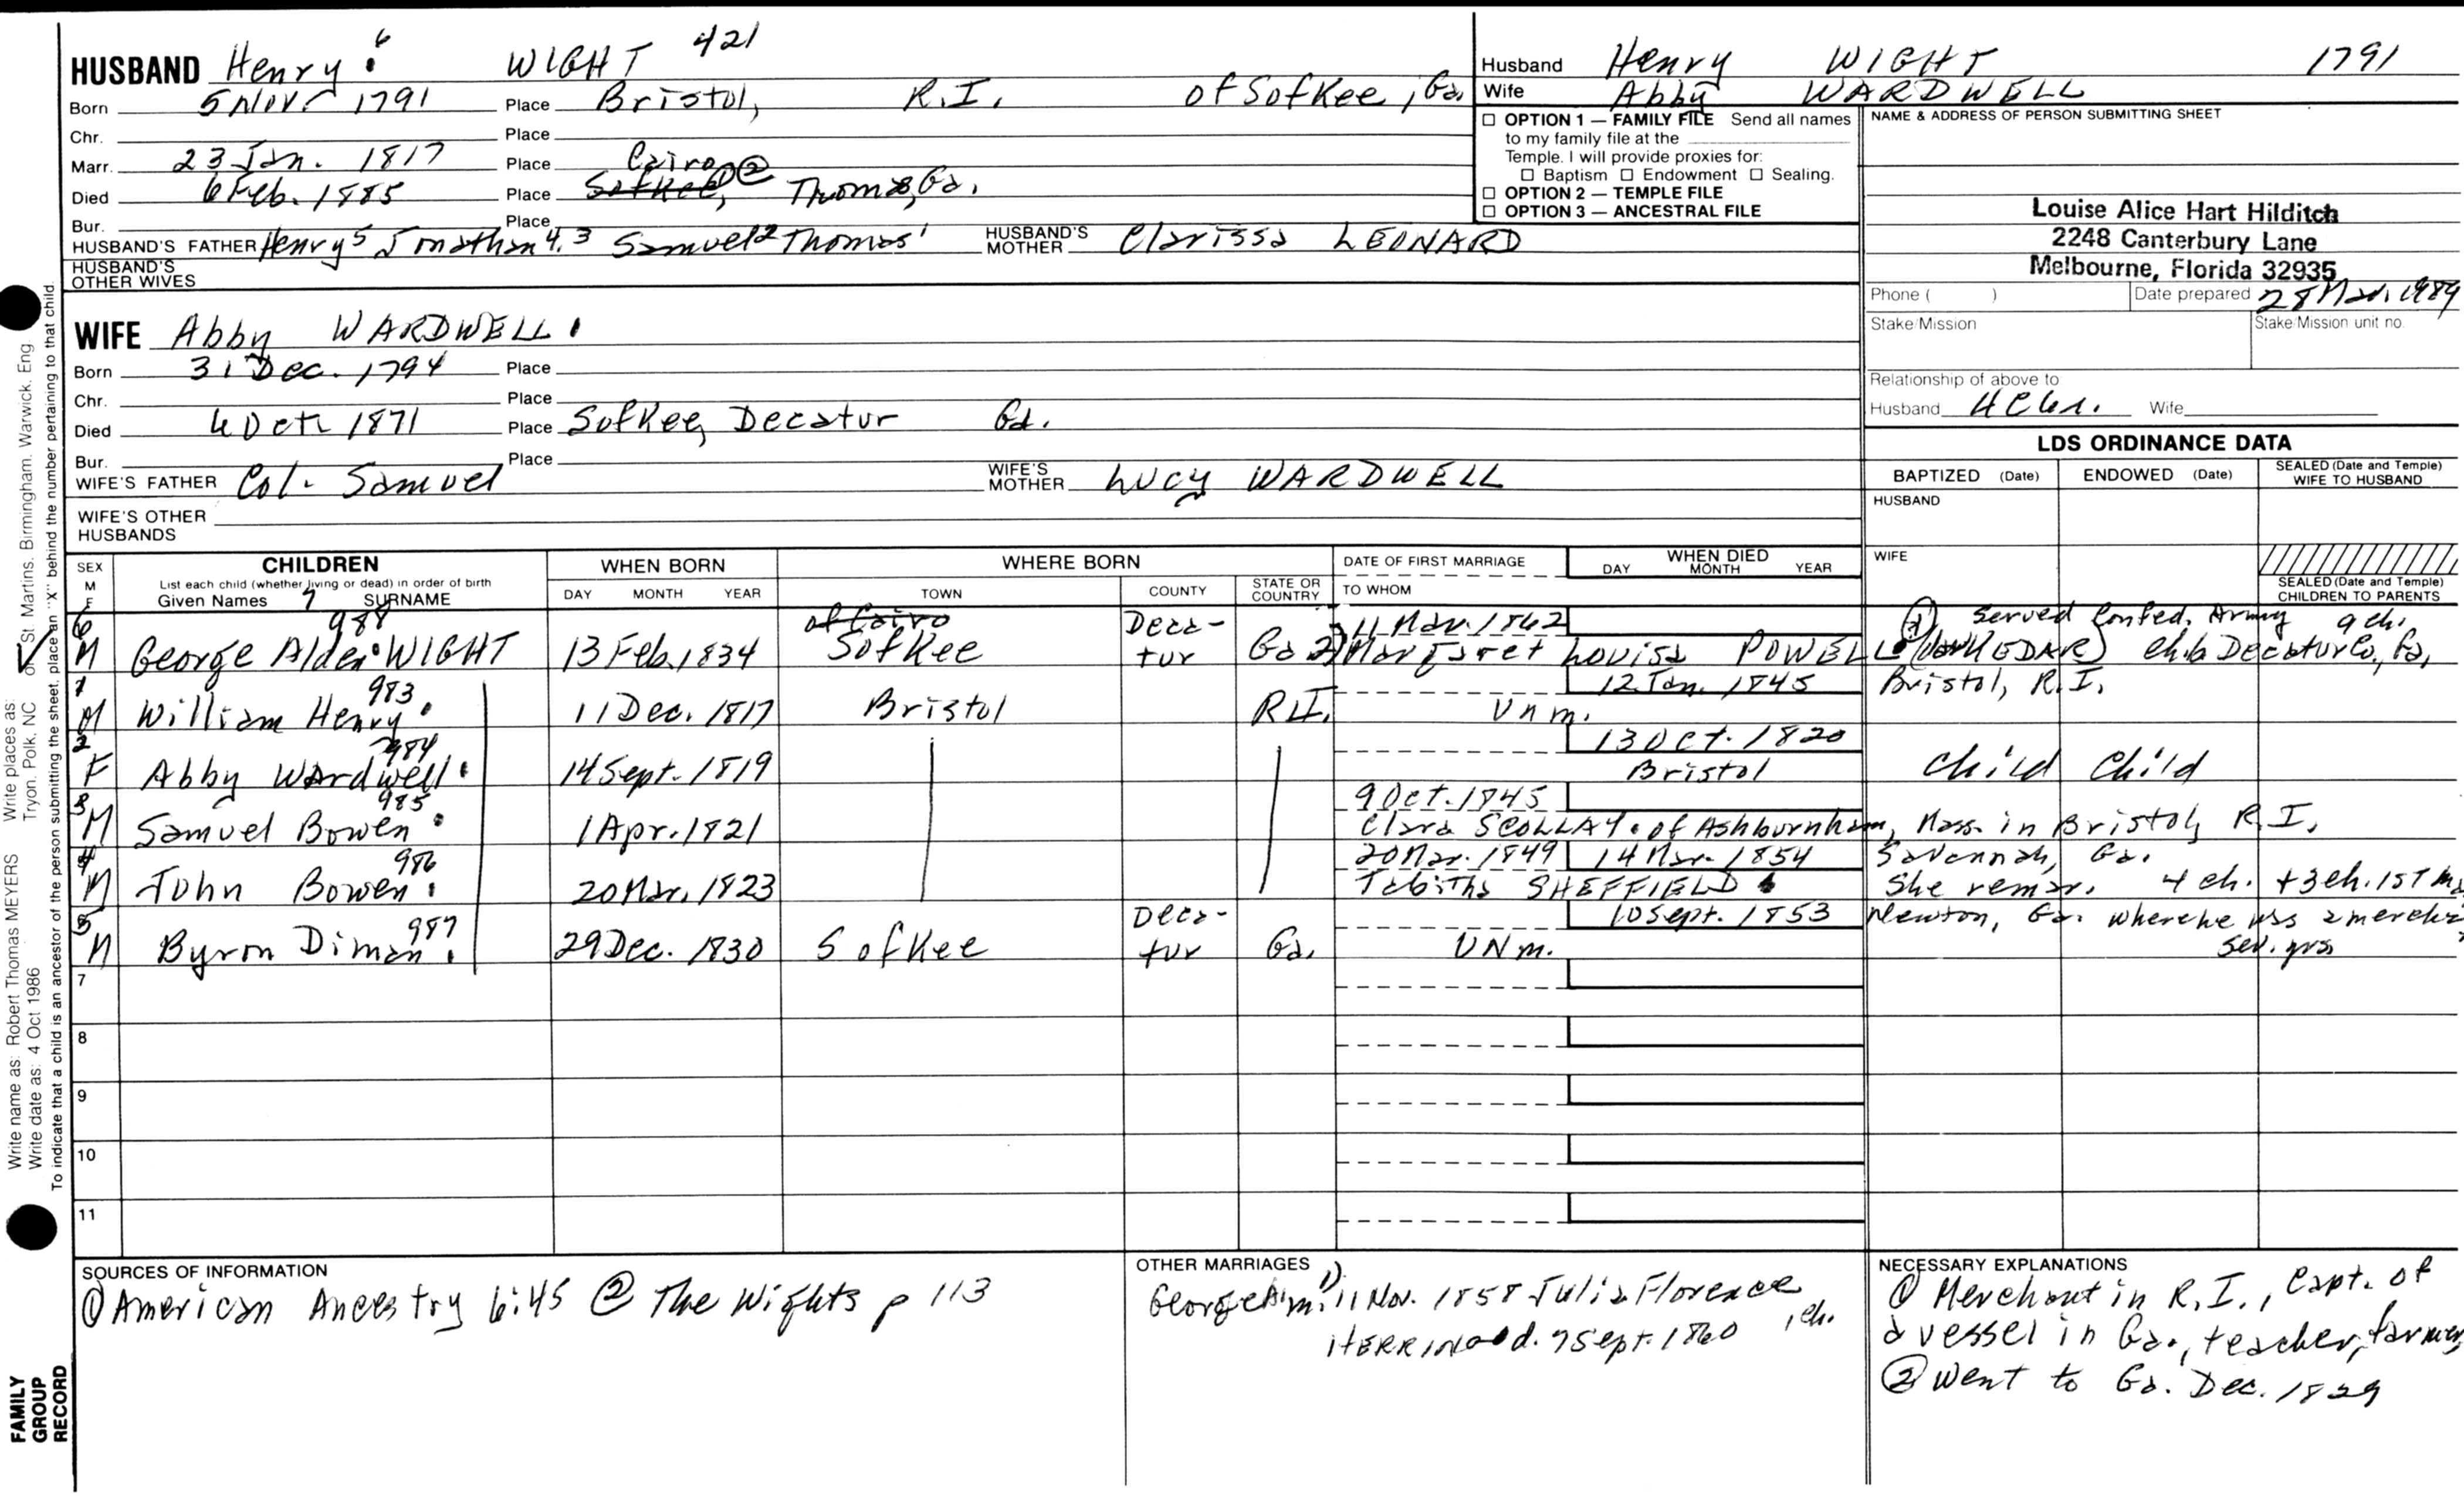 HUSBAND Henry 6 WIGHT 421
Born 5 Nov. 1791 Place Bristol, R.I. of Sofkee, Ga.
Chr. Place
Marr. 23 Jan. 1817 Place
Cairo ②
Died 6 Feb. 1885 Place Sofkee, Thomas, Ga.
Bur. Place
HUSBAND'S FATHER Henry5 Jonathan4.3 Samuel2 Thomas1 HUSBAND'S MOTHER Clarissa LEONARD
HUSBAND'S OTHER WIVES
Husband Henry WIGHT 1791
Wife Abby WARDWELL
☐ OPTION 1 — FAMILY FILE Send all names
to my family file at the
Temple. I will provide proxies for:
☐ Baptism ☐ Endowment ☐ Sealing.
☐ OPTION 2 — TEMPLE FILE
☐ OPTION 3 — ANCESTRAL FILE
NAME & ADDRESS OF PERSON SUBMITTING SHEET
Louise Alice Hart Hilditch
2248 Canterbury Lane
Melbourne, Florida 32935
Phone ( ) Date prepared 28 Mar. 1989
Stake/Mission Stake/Mission unit no.
Relationship of above to
Husband 4C6R. Wife
WIFE Abby WARDWELL
Born 31 Dec. 1794 Place
Chr. Place
Died 6 Oct. 1871 Place Sofkee, Decatur Ga.
Bur. Place
WIFE'S FATHER Col. Samuel WIFE'S MOTHER Lucy WARDWELL
WIFE'S OTHER HUSBANDS
LDS ORDINANCE DATA
BAPTIZED (Date) ENDOWED (Date) SEALED (Date and Temple) WIFE TO HUSBAND
HUSBAND
WIFE
SEALED (Date and Temple) CHILDREN TO PARENTS
SEX M F CHILDREN WHEN BORN WHERE BORN DATE OF FIRST MARRIAGE WHEN DIED
List each child (whether living or dead) in order of birth
Given Names 7 SURNAME DAY MONTH YEAR TOWN COUNTY STATE OR COUNTRY TO WHOM DAY MONTH YEAR
6 988 of Cairo Deca- 11 Mar. 1862 Served Confed. Army 9 ch.
M George Alden WIGHT 13 Feb. 1834 Sofkee tur Ga 2) Margaret Louisa POWELL ch. b Decatur Co., Ga.
1 983 12 Jan. 1845 Bristol, R.I.
M William Henry 11 Dec. 1817 Bristol R.I. Unm.
2 984 13 Oct. 1820
F Abby Wardwell 14 Sept. 1819 Bristol Child Child
3 985 9 Oct. 1845
M Samuel Bowen 1 Apr. 1821 Clara SCOLLAY of Ashburnham, Mass. in Bristol, R.I.
4 986 20 Mar. 1849 14 Mar. 1854 Savannah, Ga.
M John Bowen 20 Mar. 1823 Tabitha SHEFFIELD She remar. 4 ch. + 3 ch. 1st m.
5 987 Deca- 10 Sept. 1853 Newton, Ga. where he was a merchant
M Byron Diman 29 Dec. 1830 Sofkee tur Ga. UNm. sev. yrs
7
8
9
10
11
SOURCES OF INFORMATION
① American Ancestry 6:45 ② The Wights p 113
OTHER MARRIAGES
George A. m. 1) 11 Nov. 1858 Julia Florence
HERRING d. 7 Sept. 1860 1 ch.
NECESSARY EXPLANATIONS
① Merchant in R.I., Capt. of
a vessel in Ga., teacher, farmer
② Went to Ga. Dec. 1829
Write name as: Robert Thomas MEYERS Write places as: Tryon, Polk, NC
Write date as: 4 Oct 1986 or St Martins, Birmingham, Warwick, Eng
To indicate that a child is an ancestor of the person submitting the sheet, place an "X" behind the number pertaining to that child.
FAMILY
GROUP
RECORD